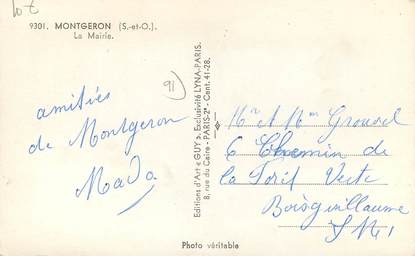 10 €
9301. MONTGERON (S.-et-O.).
La Mairie.
91
amitiés
de Montgeron
Mado
Editions d'Art « GUY ». Exclusivité LYNA-PARIS.
8, rue du Caire - PARIS-2e - Cent. 41-28.
Mr et Mme
6 Chemin de
la Forêt Verte
Boisguillaume
S M
Photo véritable